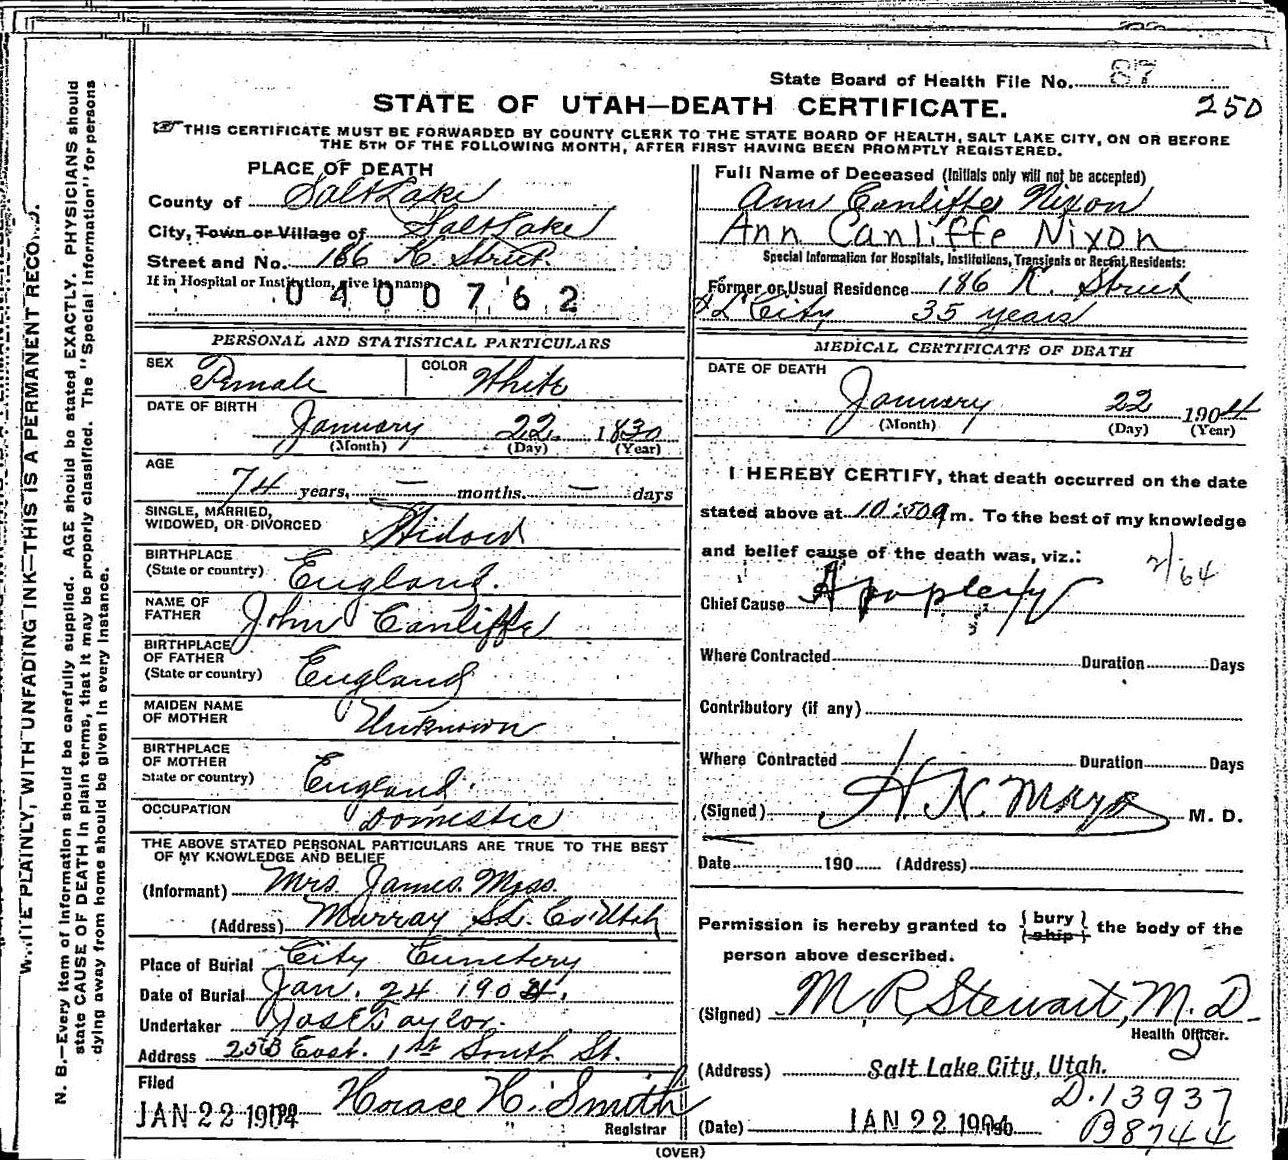 State Board of Health File No. 87
250
STATE OF UTAH—DEATH CERTIFICATE.
THIS CERTIFICATE MUST BE FORWARDED BY COUNTY CLERK TO THE STATE BOARD OF HEALTH, SALT LAKE CITY, ON OR BEFORE
THE 5TH OF THE FOLLOWING MONTH, AFTER FIRST HAVING BEEN PROMPTLY REGISTERED.
PLACE OF DEATH
County of Salt Lake
City, Town or Village of Salt Lake
Street and No. 186 K. Street
If in Hospital or Institution, give its name
0400762
Full Name of Deceased (Initials only will not be accepted)
Ann Canliffe Nixon
Ann Canliffe Nixon
Special Information for Hospitals, Institutions, Transients or Recent Residents:
Former or Usual Residence 186 K. Street
S L City 35 years
PERSONAL AND STATISTICAL PARTICULARS
SEX Female COLOR White
DATE OF BIRTH
January 22 1830
(Month) (Day) (Year)
AGE
74 years, — months. — days
SINGLE, MARRIED,
WIDOWED, OR DIVORCED Widowed
BIRTHPLACE
(State or country) England.
NAME OF
FATHER John Canliffe
BIRTHPLACE
OF FATHER
(State or country) England
MAIDEN NAME
OF MOTHER Unknown
BIRTHPLACE
OF MOTHER
State or country) England.
OCCUPATION Domestic
THE ABOVE STATED PERSONAL PARTICULARS ARE TRUE TO THE BEST
OF MY KNOWLEDGE AND BELIEF
(Informant) Mrs. James Moss.
(Address) Murray SL Co Utah
Place of Burial City Cemetery
Date of Burial Jan. 24 1904.
Undertaker Jos E Taylor.
Address 253 East. 1st South St.
Filed
JAN 22 1904 190 Horace H. Smith
Registrar
MEDICAL CERTIFICATE OF DEATH
DATE OF DEATH
January 22 1904
(Month) (Day) (Year)
I HEREBY CERTIFY, that death occurred on the date
stated above at 10:50 a m. To the best of my knowledge
and belief cause of the death was, viz.:
2/64
Chief Cause Apoplexy
Where Contracted Duration Days
Contributory (if any)
Where Contracted Duration Days
(Signed) H. N. Mayo M. D.
Date 190 (Address)
Permission is hereby granted to { bury } the body of the
{ ship }
person above described.
(Signed) M. R. Stewart, M. D.
Health Officer.
(Address) Salt Lake City, Utah.
D.13937
(Date) JAN 22 1904 190
B8744
(OVER)
WRITE PLAINLY, WITH UNFADING INK—THIS IS A PERMANENT RECORD.
N. B.—Every item of information should be carefully supplied. AGE should be stated EXACTLY. PHYSICIANS should
state CAUSE OF DEATH in plain terms, that it may be properly classified. The "Special Information" for persons
dying away from home should be given in every instance.